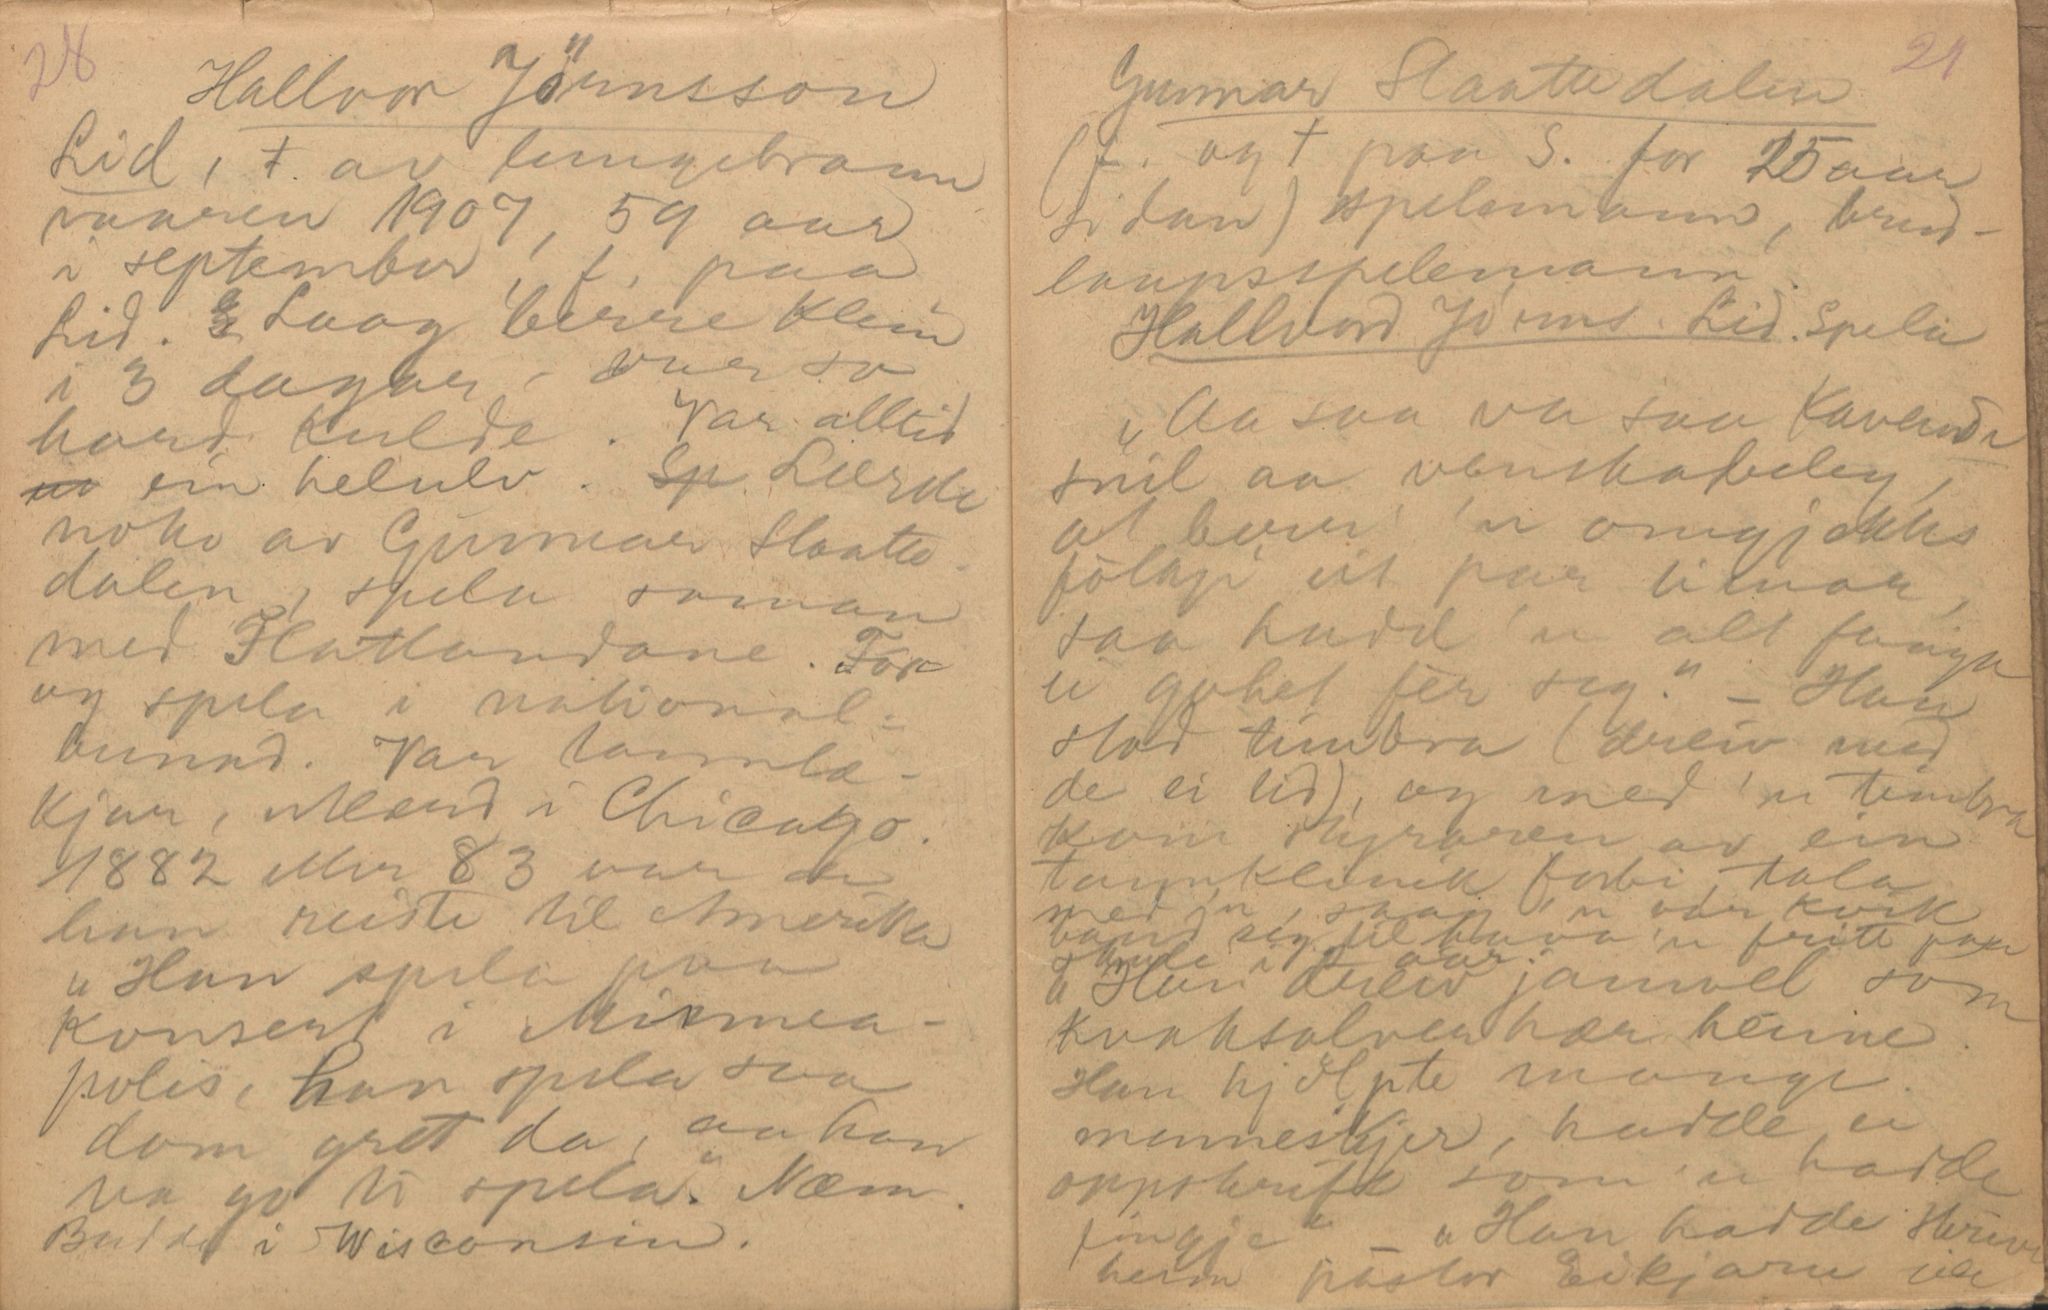 28
Hallvor Jörnsson
Lid, † av lungebrann
vaaren 1907, 59 aar
i september, f. paa
Lid. Laag berre klein
i 3 dagar, - var so
hard kulde. Var alltid
ein helulv. Lærde
noko av Gunnar Slaatte-
dalen, spela saman
med Flatlandane. For
og spela i national-
bunad. Var tannlæ-
kjar, i Chicago.
1882 83 var
han reiste til Amerika
„Han spela paa
konsert i Minnea-
polis, han spela saa
dom gret da, aa han
va go ti spela." Næm.
Budde i Wisconsin.
29
Gunnar Slaattedalen
(f. og † paa S. for 25 aar
sidan) spelemann, brud-
laupsspelemann.
Hallvord Jörns. Lid. Spela
„Aa saa va saa
snil aa venskabeleg,
at berr' 'n omgjekks
fölkji eit par timar,
saa hadd 'n alt fengje
ei gohet fer seg." – Han
stod timbra (dreiv med
de ei tid), og med 'n timbra
kom styraren av ein
tannklinik forbi, tala
med 'n, saag 'n var kvik
baud seg til hava 'n fritt paa
skule i aar.
„Han dreiv jamvel som
kvaksalver hær heime.
Han hjölpte mange
menneskjer, hadde ei
oppskrift som 'n hadde
fingje" – „Han hadde skreve
heim pastor Eikjarud